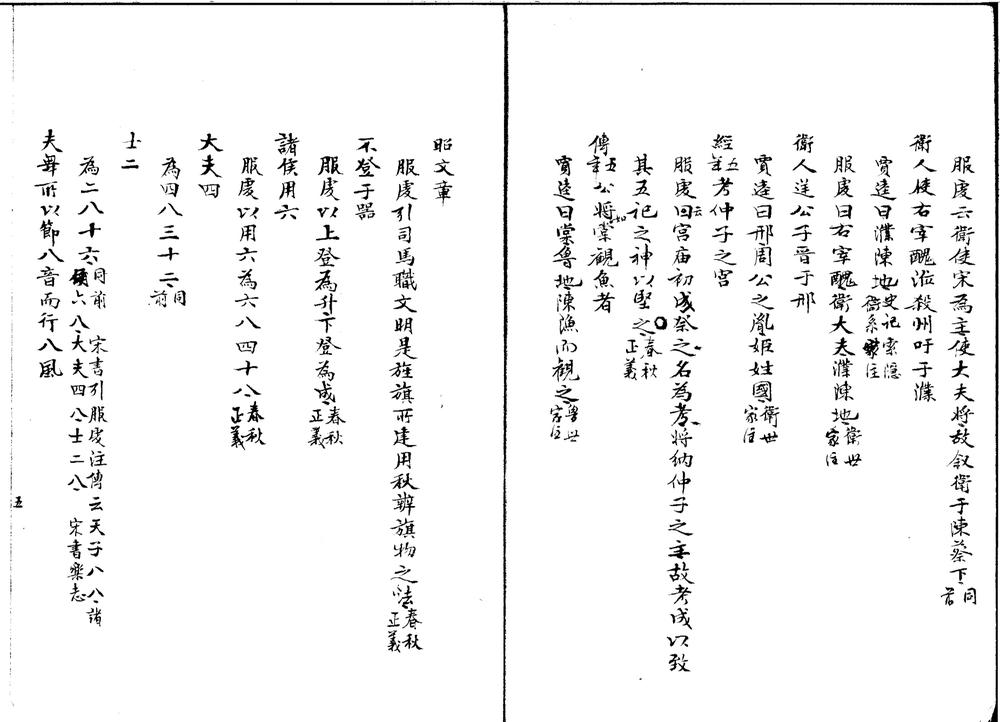 服虔云衛使宋為主使大夫將故叙衛于陳蔡下同前
衛人使右宰醜涖殺州吁于濮
賈逵曰濮陳地史記索隱衛系家注
服虔曰右宰醜衛大夫濮陳地衛世家注
衛人逆公子晋于邢
賈逵曰邢周公之胤姬姓國衛世家注
經五年考仲子之宮
服虔云宮庙初成祭之名為考將納仲子之主故考成以致
其五祀之神以堅之春秋正義
傳五年公將如棠觀魚者
賈逵曰棠魯地陳漁而觀之魯世家注
昭文章
服虔引司馬職文明是旌旗所建用秋辨旗物之法春秋正義
不登于器
服虔以上登為升下登為成春秋正義
諸侯用六
服虔以用六為六八四十八春秋正義
大夫四
為四八三十二同前
士二
為二八十六同前 宋書引服虔注傳云天子八八諸侯六八大夫四八士二八 宋書樂志
夫舞所以節八音而行八風
五